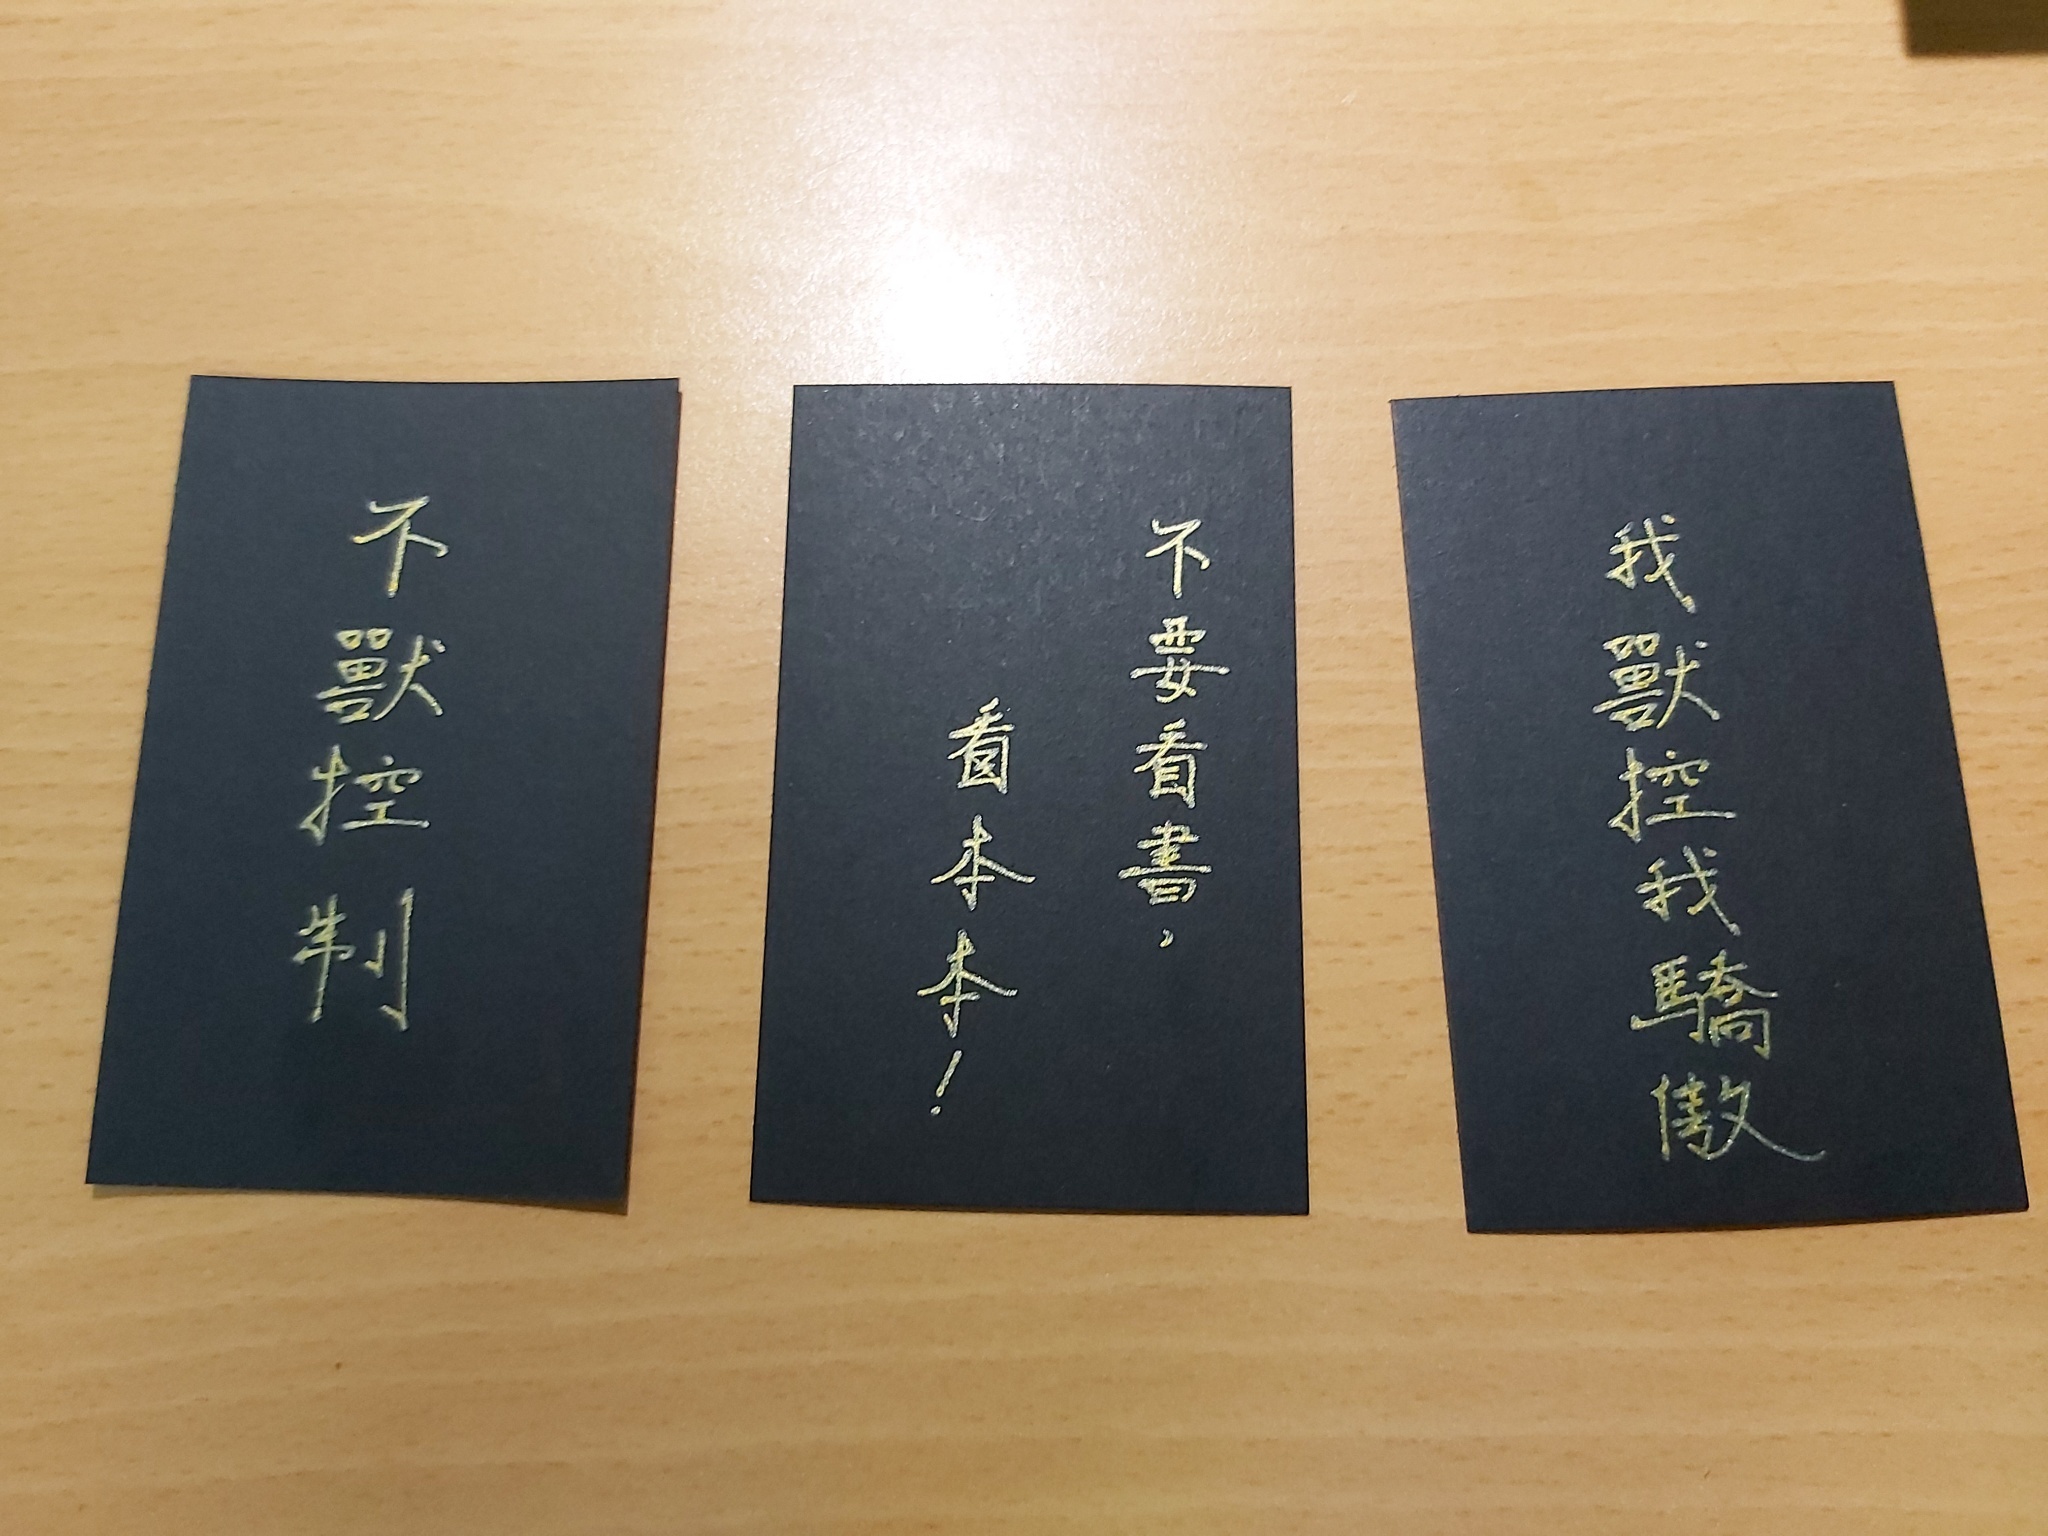 不獸控制
不要看書，
看本本！
我獸控我驕傲